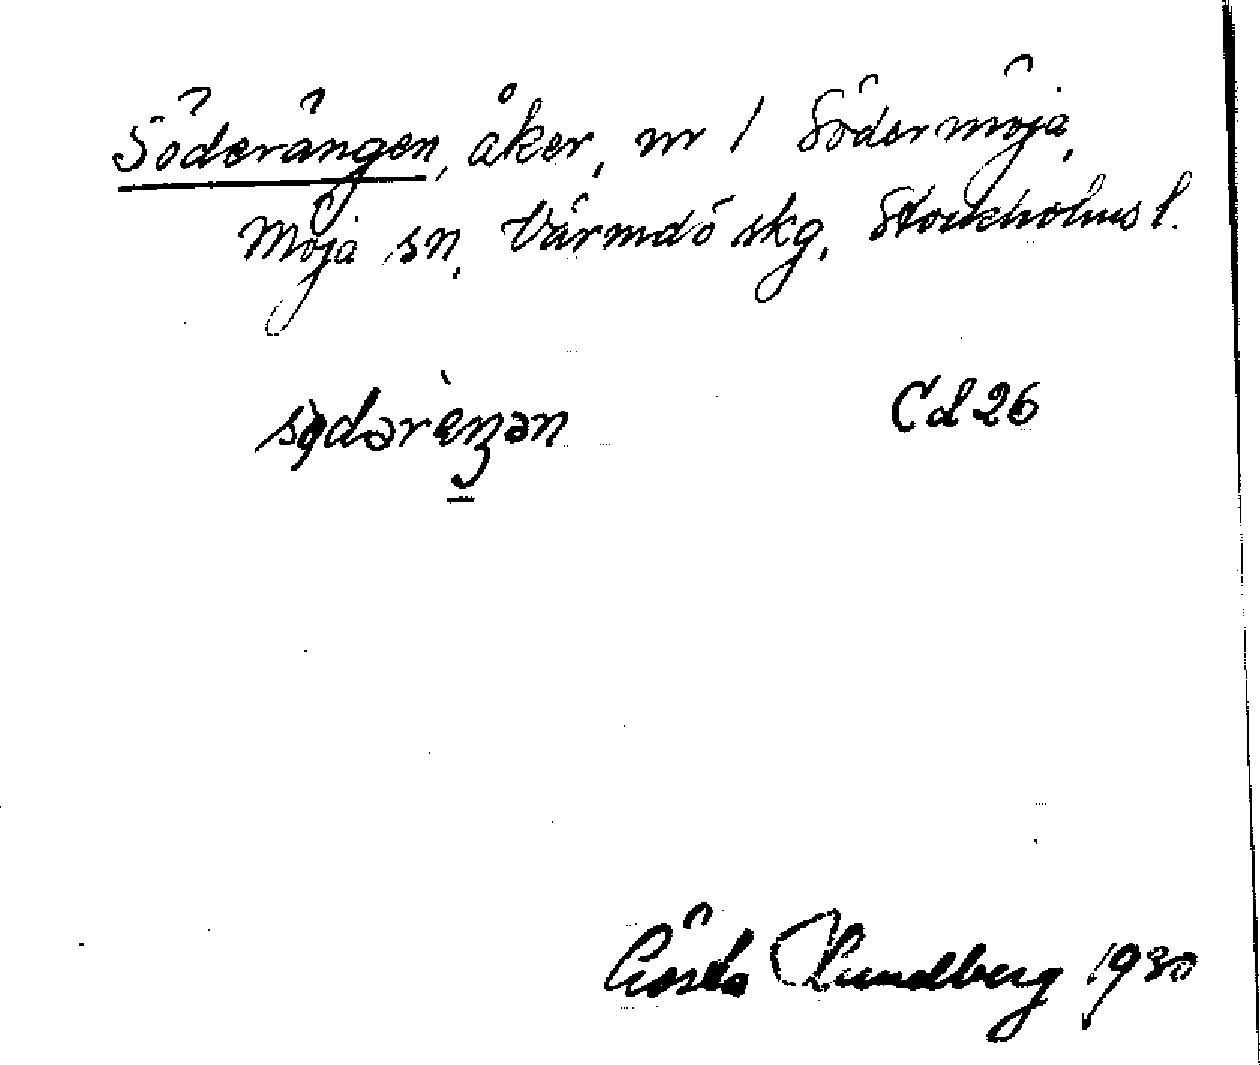 Söderängen, åker, nr 1 Södermöja,
Möja sn, Värmdö skg, Stockholms l.
Cd 26
Gösta Lundberg 1930